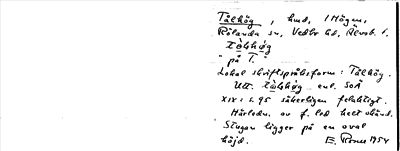 Tålhög, hmd, / Högen,
Rölanda sn, Vedbo hd, Älvsb. l.
tå̀lhø̀g
"på T."
Lokal skriftspråksform: Tålhög.
Utt. tålhög enl. SOÄ
XIX: s. 95 säkerligen felaktigt.
Härledn. av f. led helt okänd.
Stugan ligger på en oval
höjd. E. Rene 1954